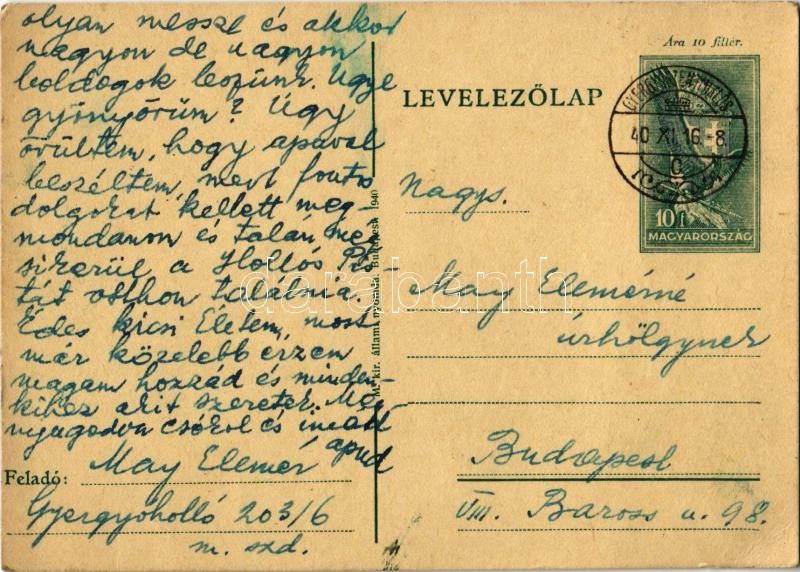 olyan messze és akkor
nagyon de nagyon
boldogok leszünk. Ugye
gyönyörüm? Úgy
örültem, hogy apával
beszéltem, mert fontos
dolgokat kellett meg-
mondanom és talán
sikerül a Hollós Pis-
tát otthon találnia.
Édes kicsi Életem, most
már közelebb érzem
magam hozzád és minden-
kihez akit szeretek. Meg
nyugodva csókol és imád
apud
Feladó: May Elemér
Gyergyóholló 203/6
m. szd.
M. kir. állami nyomda, Budapest 1940
Ára 10 fillér.
LEVELEZŐLAP
40 XI. 16.-8
C
10 f
MAGYARORSZÁG
Nagys.
May Elemérné
úrhölgynek
Budapest
VIII. Baross u. 98.
darabanth